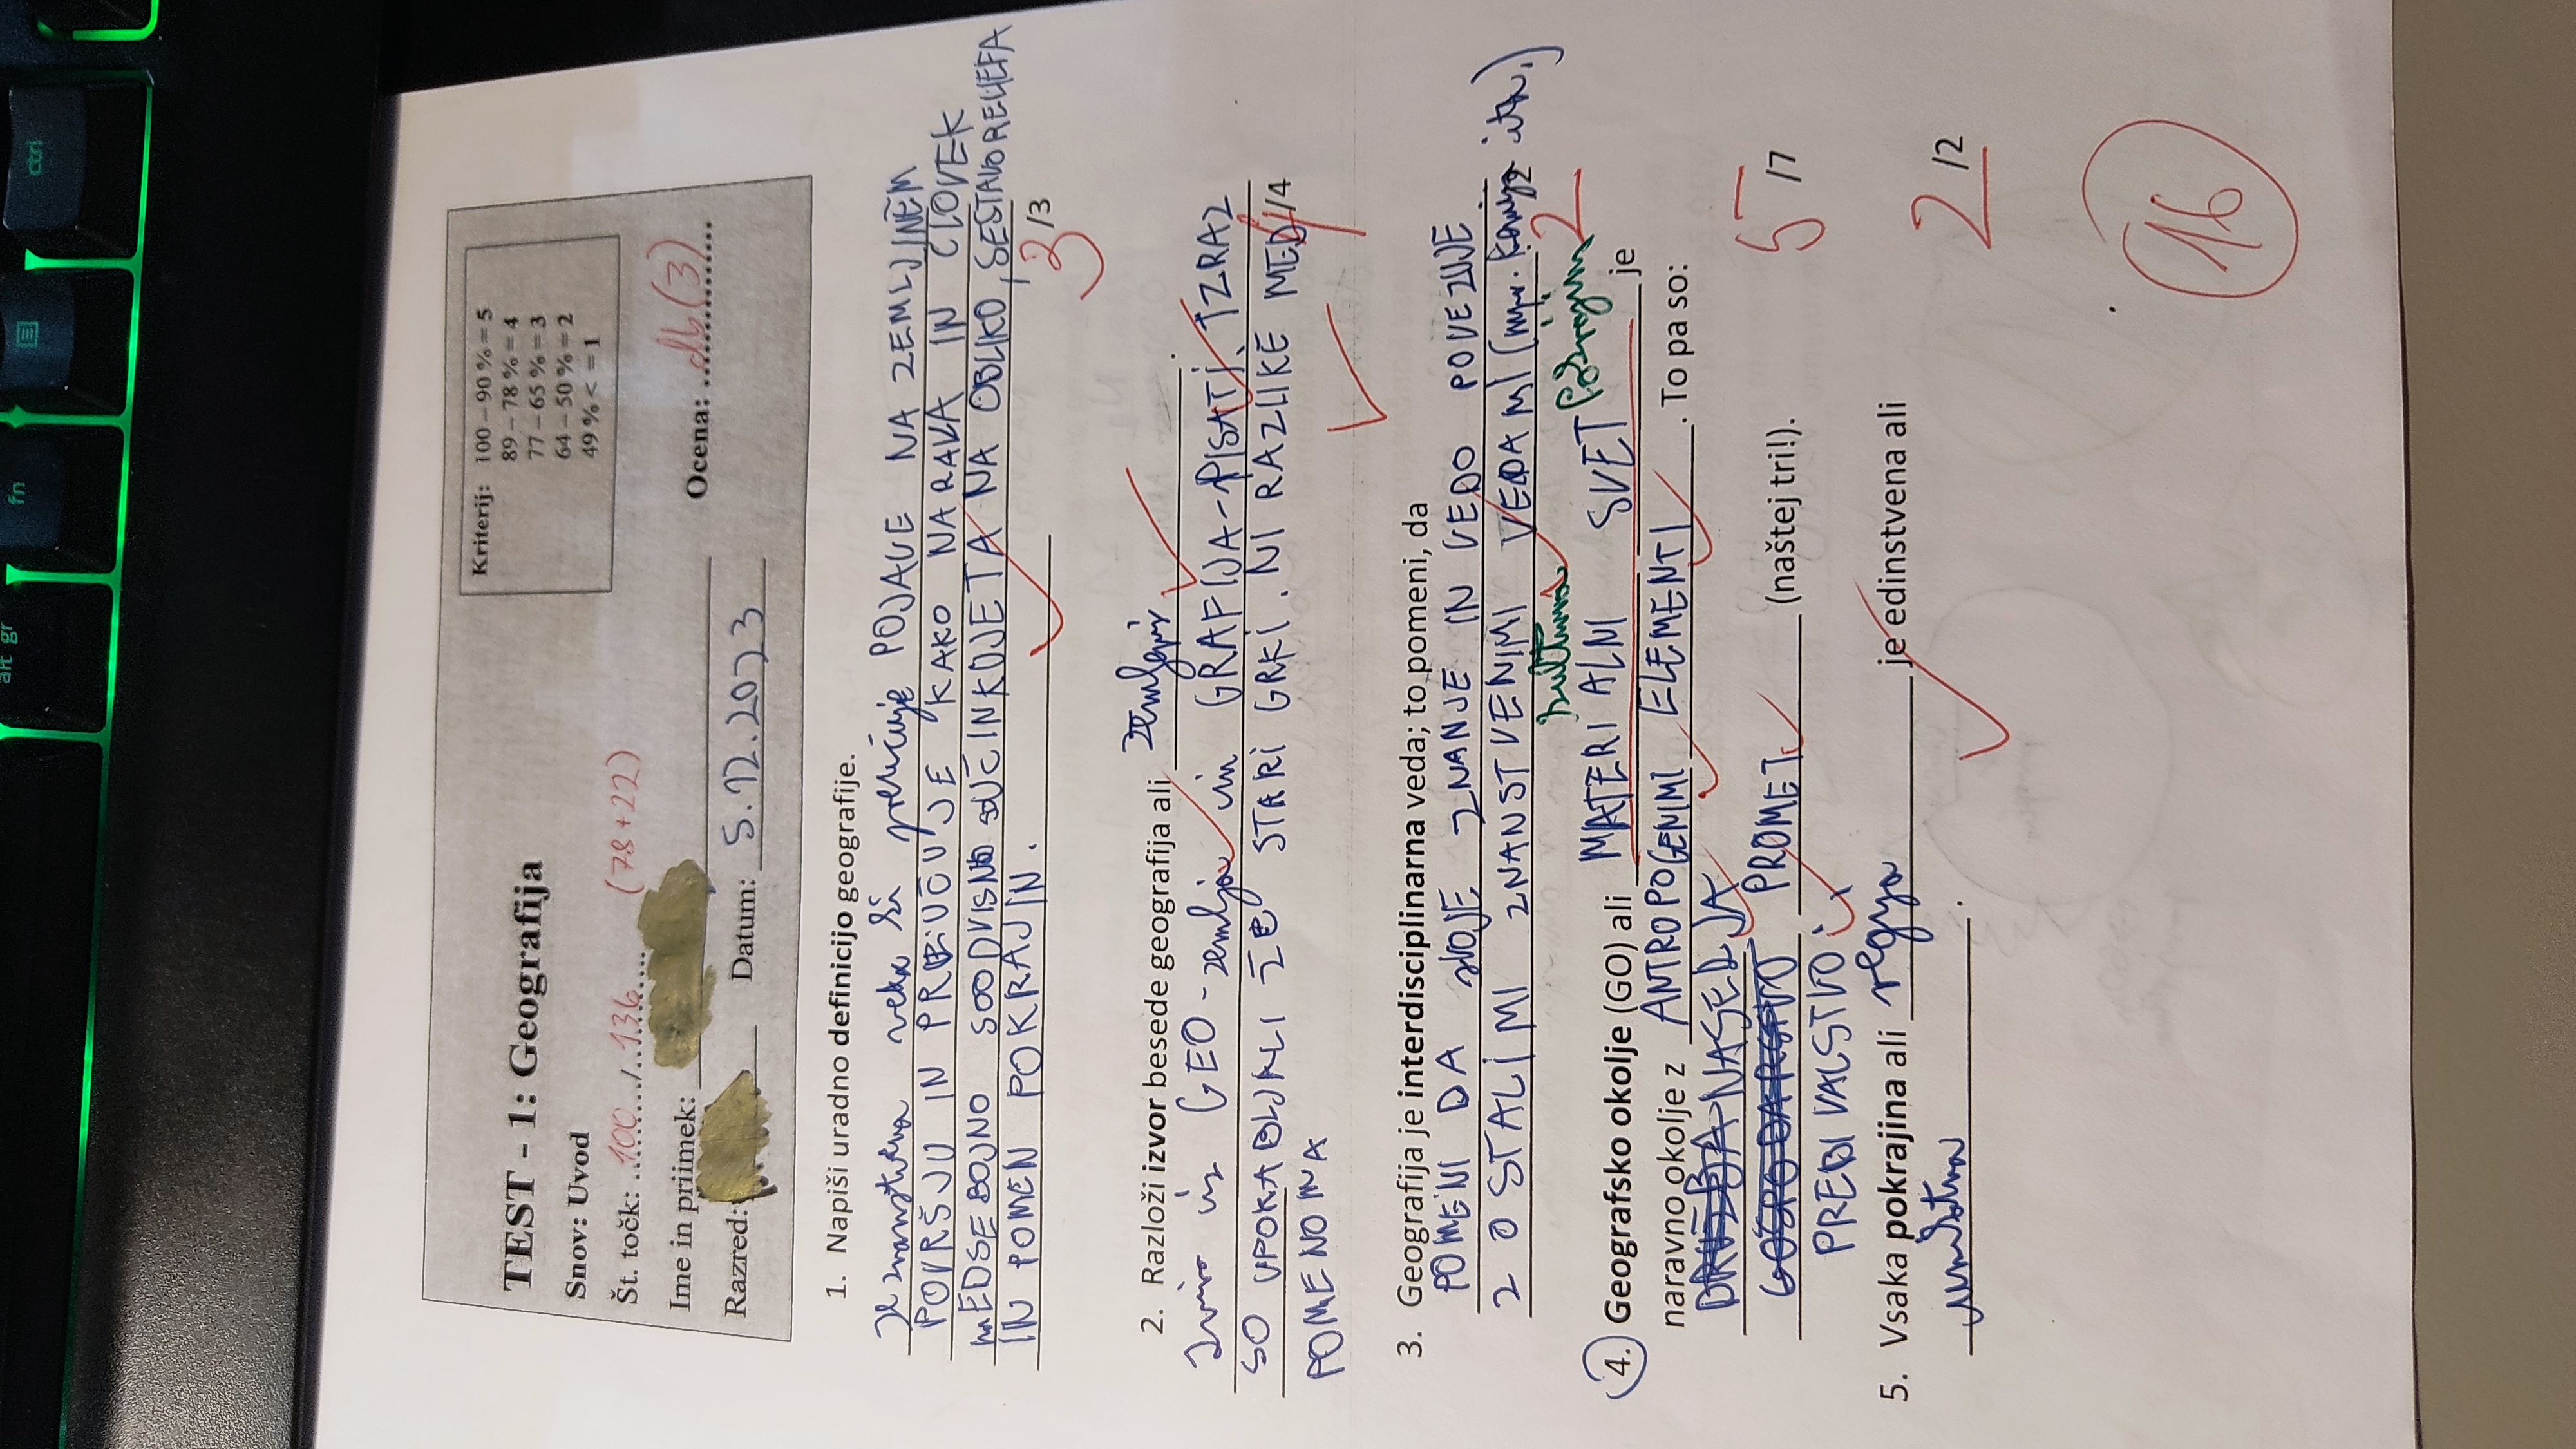 alt gr fn ctrl
TEST - 1: Geografija
Kriterij: 100 – 90 % = 5
89 – 78 % = 4
77 – 65 % = 3
64 – 50 % = 2
49 % < = 1
Snov: Uvod
Št. točk: 100 / 136 (78+22)
Ime in priimek:
Ocena: db (3)
Razred: Datum: 5.12.2023
1. Napiši uradno definicijo geografije.
Je znanstvena veda ki preučuje POJAVE NA ZEMLJINEM
POVRŠJU IN PREUČUJE KAKO NARAVA IN ČLOVEK
MEDSEBOJNO SOODVISNO SOUČINKUJETA NA OBLIKO, SESTAVO RELIEFA
IN POMEN POKRAJIN.
3/3
2. Razloži izvor besede geografija ali zemljepis.
Izvira iz GEO-zemlja in GRAFIJA-PISATI. IZRAZ
SO UPORABLJALI ŽE STARI GRKI. NI RAZLIKE MED
4/4
POMENOMA
3. Geografija je interdisciplinarna veda; to pomeni, da
POMENI DA svoje ZNANJE IN VEDO POVEZUJE
Z OSTALIMI ZNANSTVENIMI VEDAMI (npr. itn.)
2
kulturna pokrajina
4. Geografsko okolje (GO) ali MATERIALNI SVET je
naravno okolje z ANTROPOGENIMI ELEMENTI. To pa so:
DRUŽBA NASELJA
GOSPODARSTVO PROMET (naštej tri!).
5/7
PREBIVALSTVO
5. Vsaka pokrajina ali regija je edinstvena ali
unikatna.
2/2
16